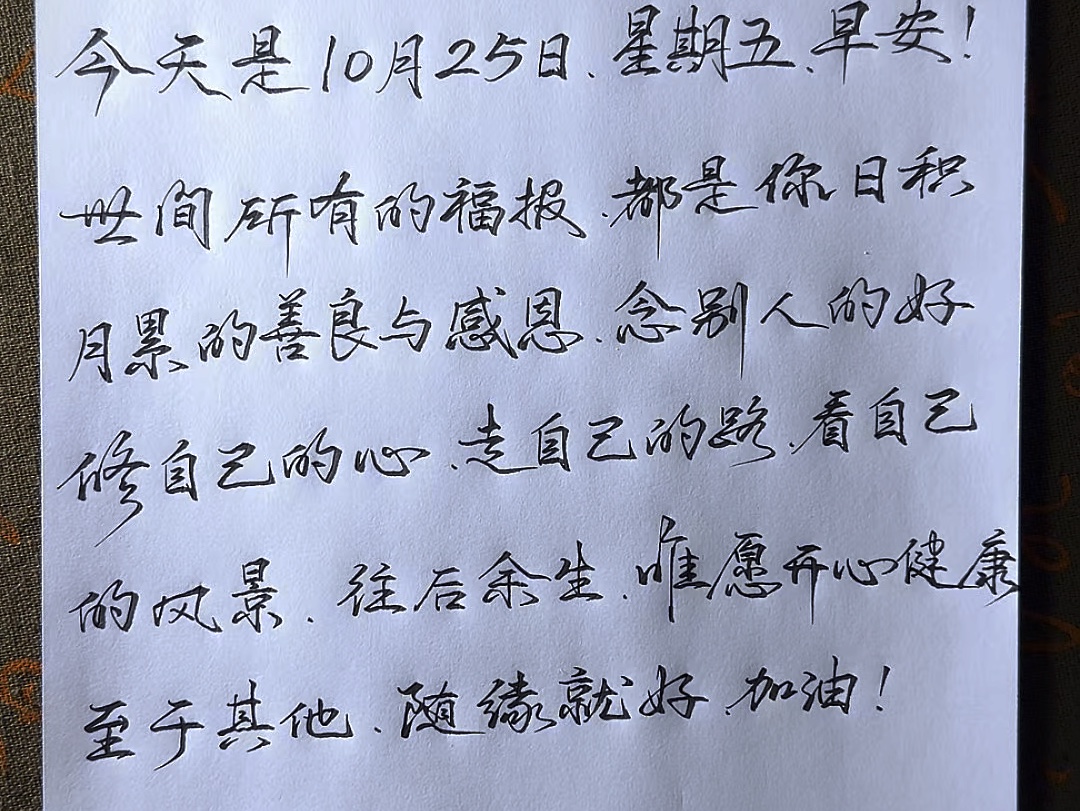 今天是10月25日、星期五、早安！
世间所有的福报、都是你日积
月累的善良与感恩、念别人的好
修自己的心、走自己的路、看自己
的风景、往后余生、唯愿开心健康
至于其他、随缘就好、加油！